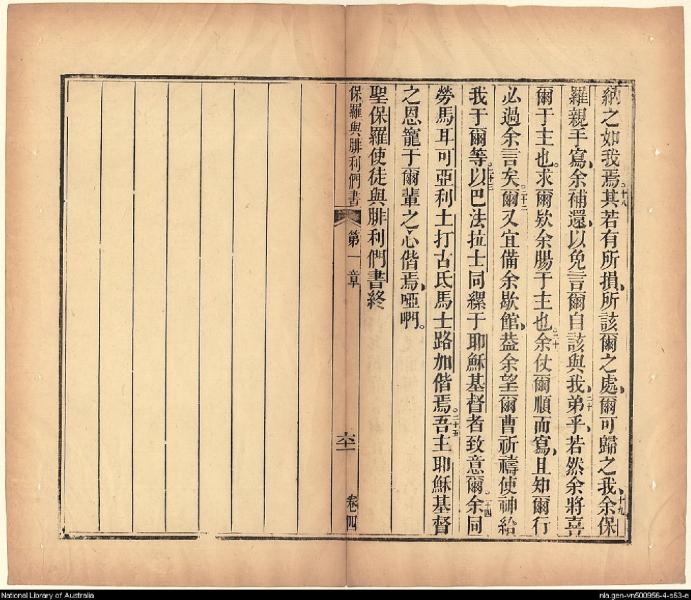 納之如我焉。十八其若有所損、所該爾之處、爾可歸之我、十九余保
羅親手寫、余補還、以免言爾自該與我、二十弟乎、若然余將喜
爾于主也。求爾欵余腸于主也。二十一余仗爾順而寫、且知爾行
必過余言矣。二十二爾又宜備余歇館、葢余望爾曹祈禱使神給
我于爾等。二十三以巴法拉士同縲于耶穌基督者致意爾。二十四余同
勞馬耳可亞利士打古氐馬士路加偕焉。二十五吾主耶穌基督
之恩寵于爾輩之心偕焉、啞𠵽。
聖保羅使徒與腓利們書終
保羅與腓利們書 第一章 卷四
National Library of Australia
nla.gen-vn500956-4-s53-e